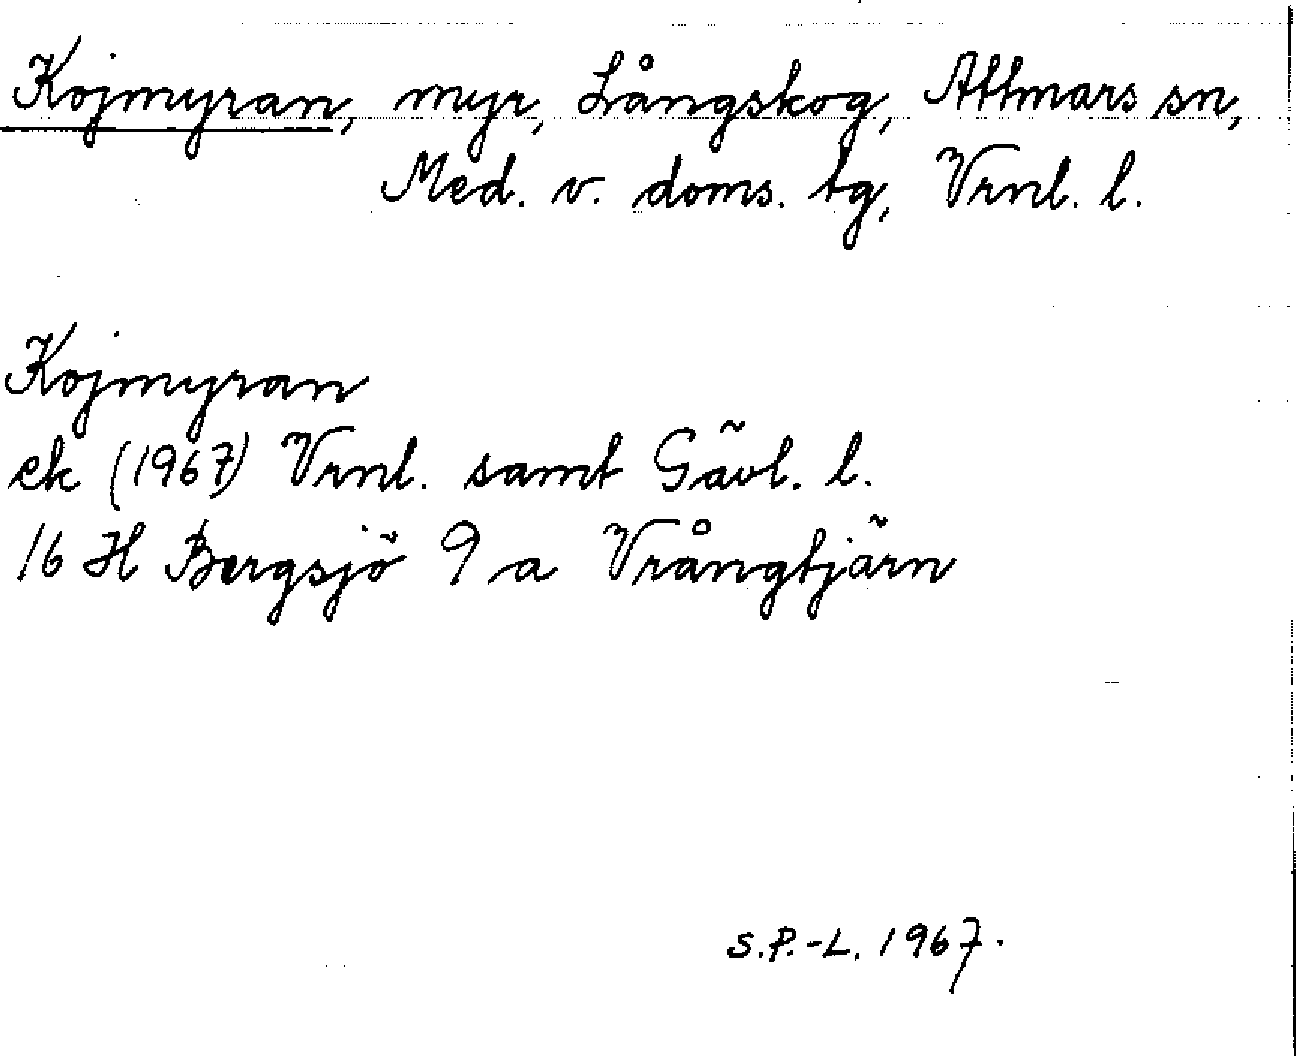 Kojmyran, myr, Långskog, Attmars sn,
Med. v. doms. tg, Vrnl. l.
Kojmyran
ek (1967) Vrnl. samt Gävl. l.
16 H Bergsjö 9 a Vrångtjärn
S.P.-L. 1967.